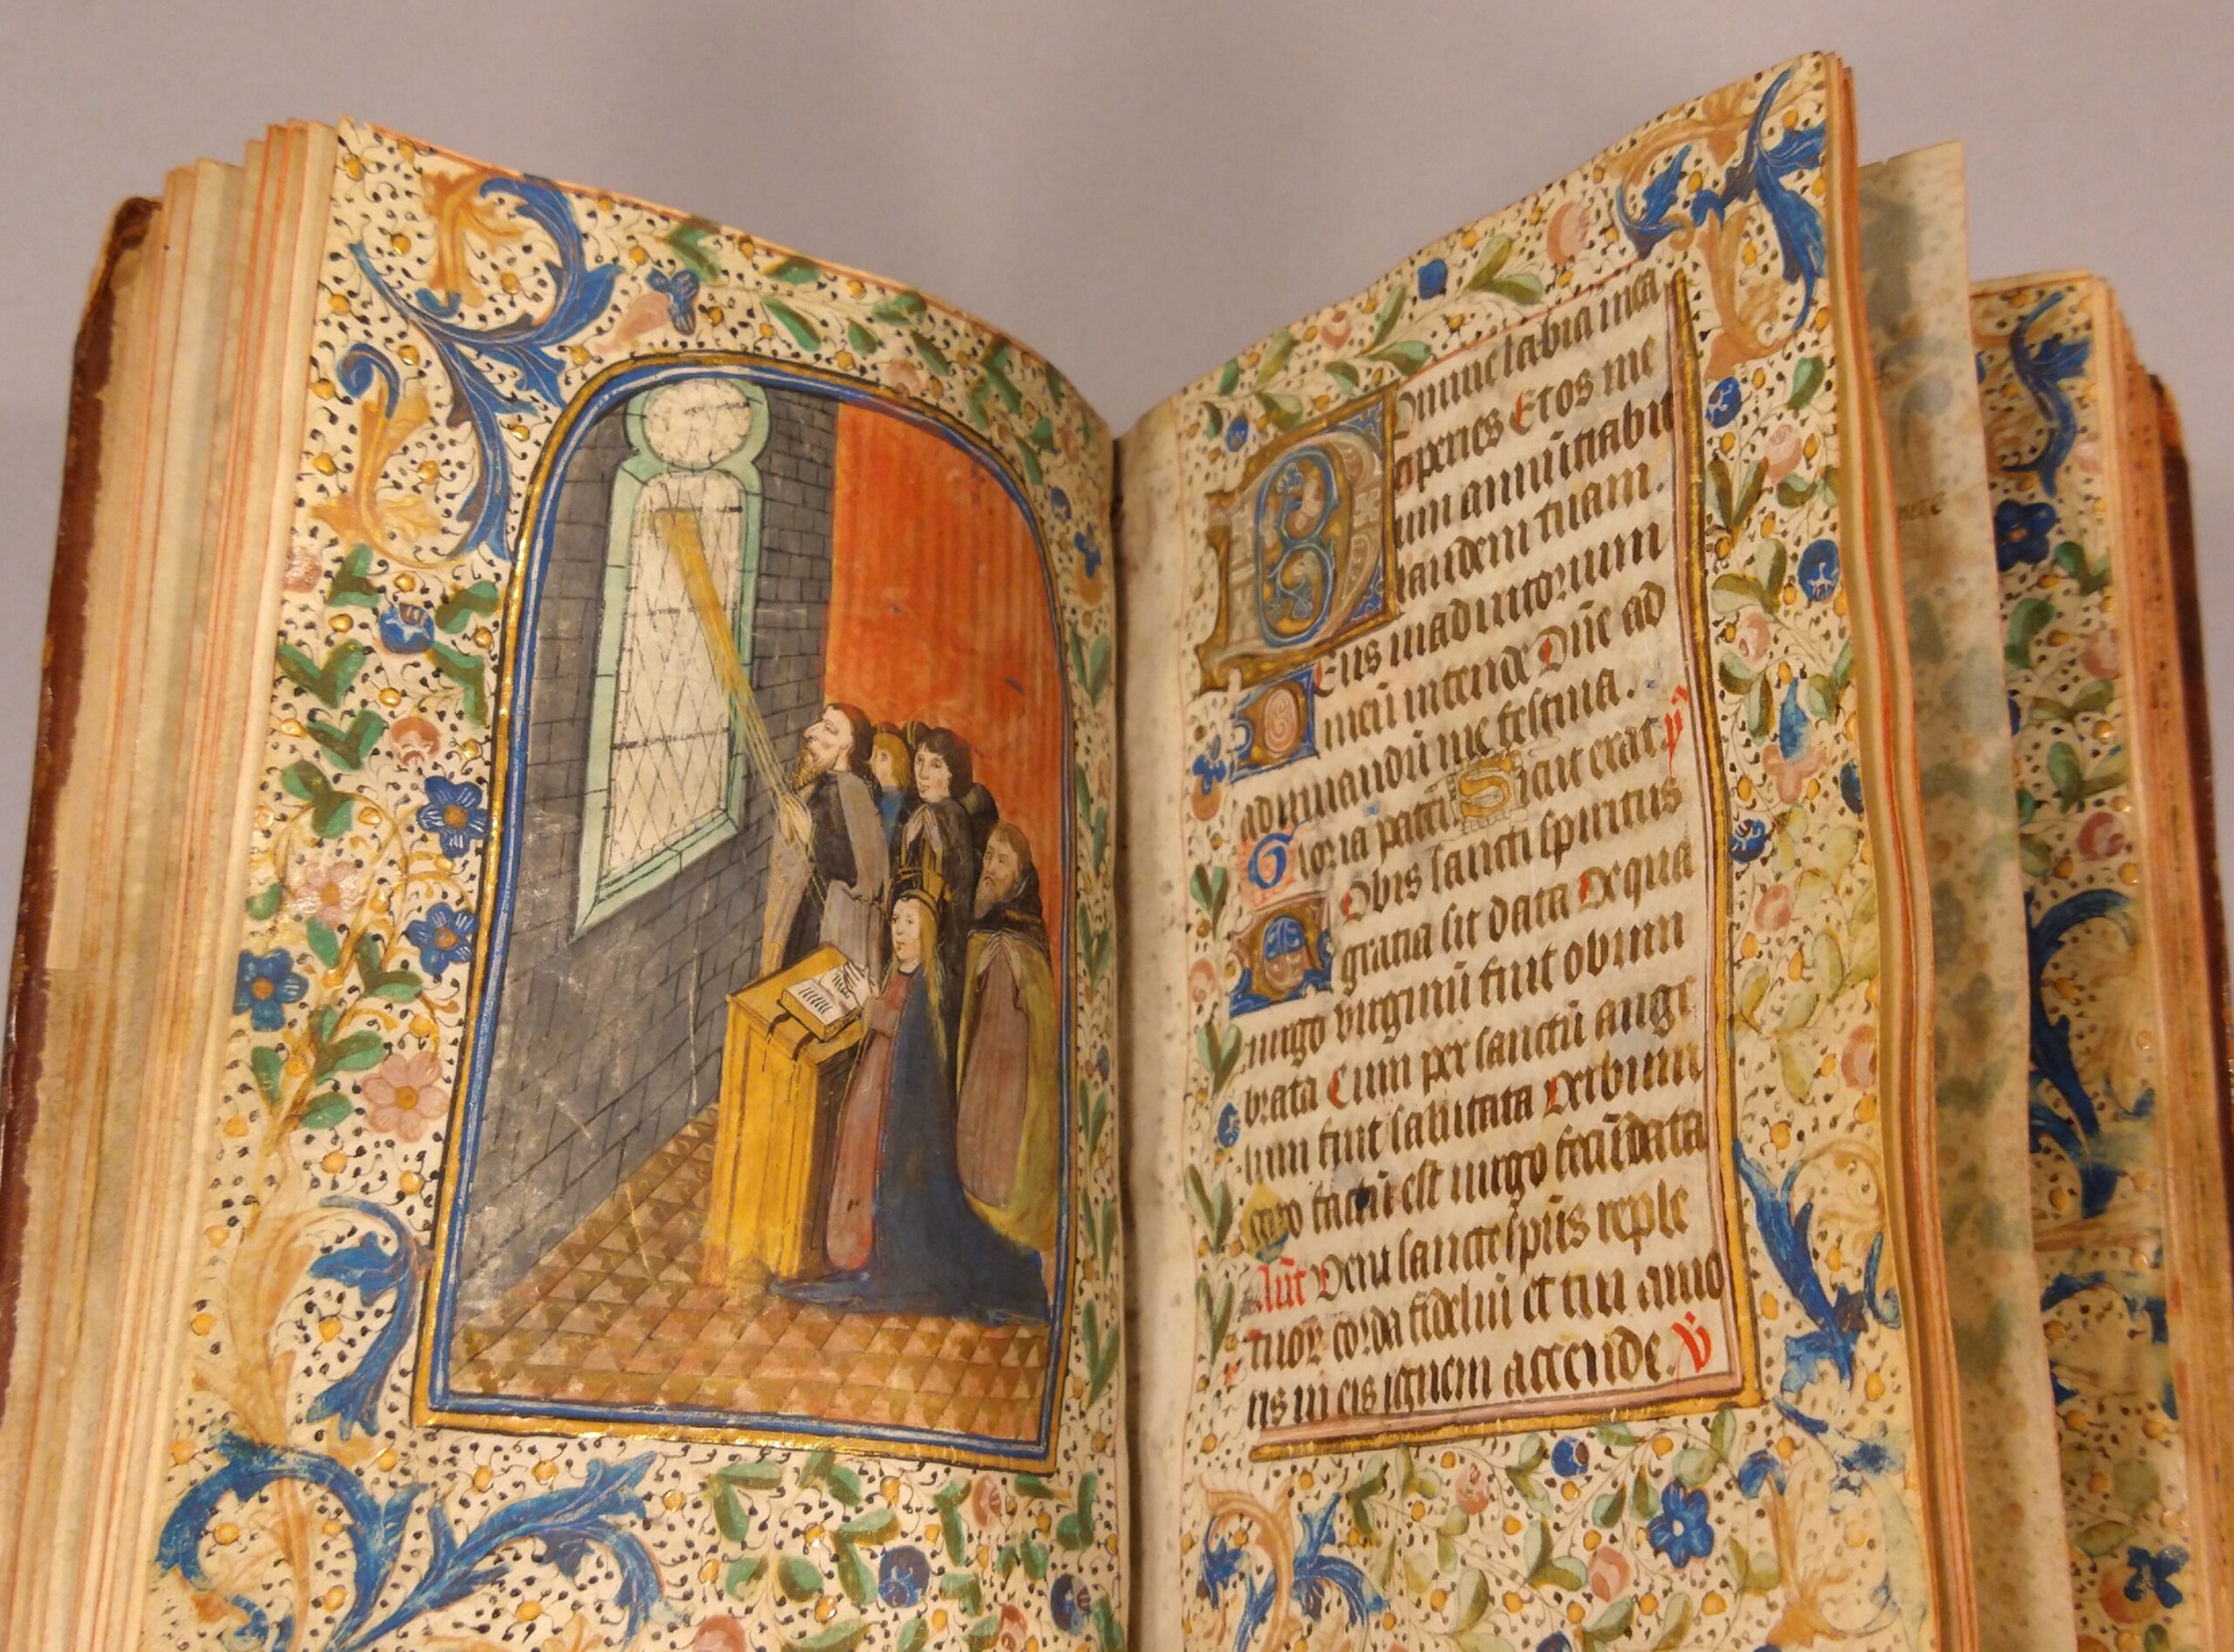 Domine labia mea
aperies Et os me
um annūtiabit
laudem tuam.
Deus in adiutorium
meū intende Dn̄e ad
adiuuandū me festina.
Gloria patri Sicut erat
Nobis sancti spiritus
gratia sit data De qua
uirgo virginū fuit obum
brata Cum per sanctū ange
lum fuit salutata Verbum
caro factū est uirgo fecūdata
An̄t Veni sancte sp̄us reple
tuoꝝ corda fideliū et tui amo
ris in eis ignem accende. V̄